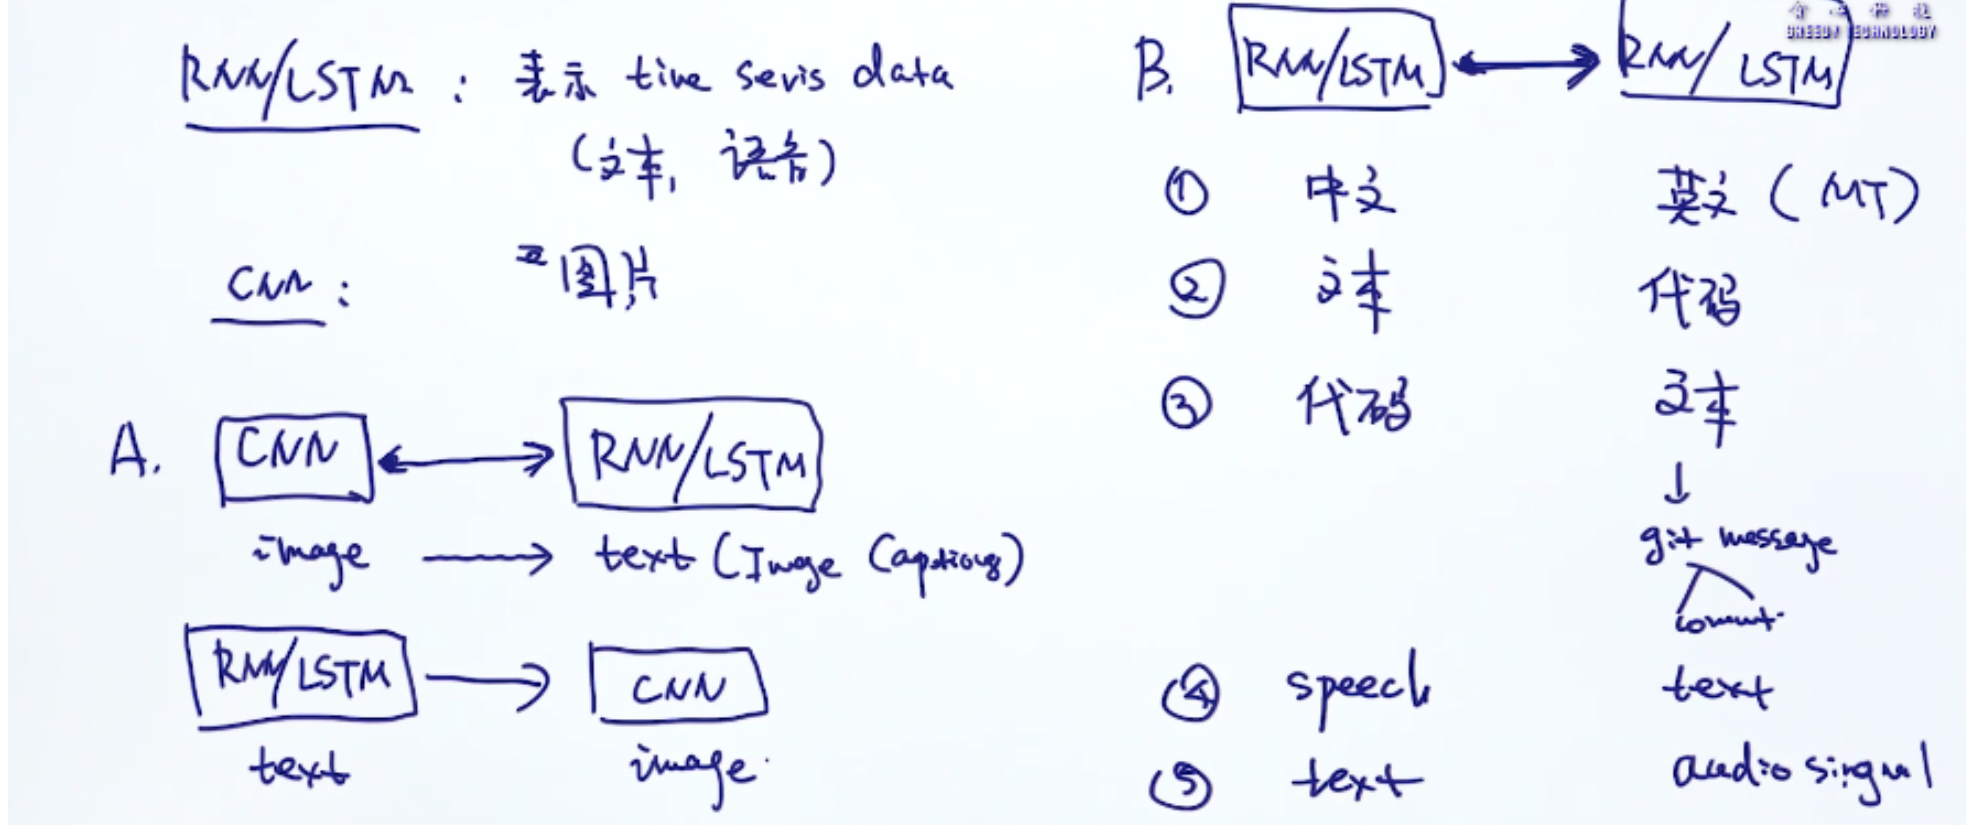 RNN/LSTM : 表示 time series data
(文本, 语音)
CNN : 〃 图片
A. CNN RNN/LSTM
image text (Image Captioning)
RNN/LSTM CNN
text image.
B. RNN/LSTM RNN/LSTM
① 中文 英文 (MT)
② 文本 代码
③ 代码 文本
git message
commit
④ speech text
⑤ text audio singnal
GREEDY TECHNOLOGY